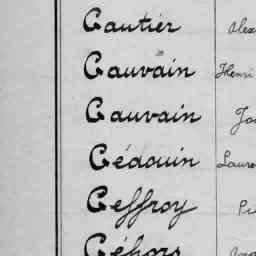 Gautier
Gauvain Henri
Gauvain
Gédouin
Geffroy
Géhors